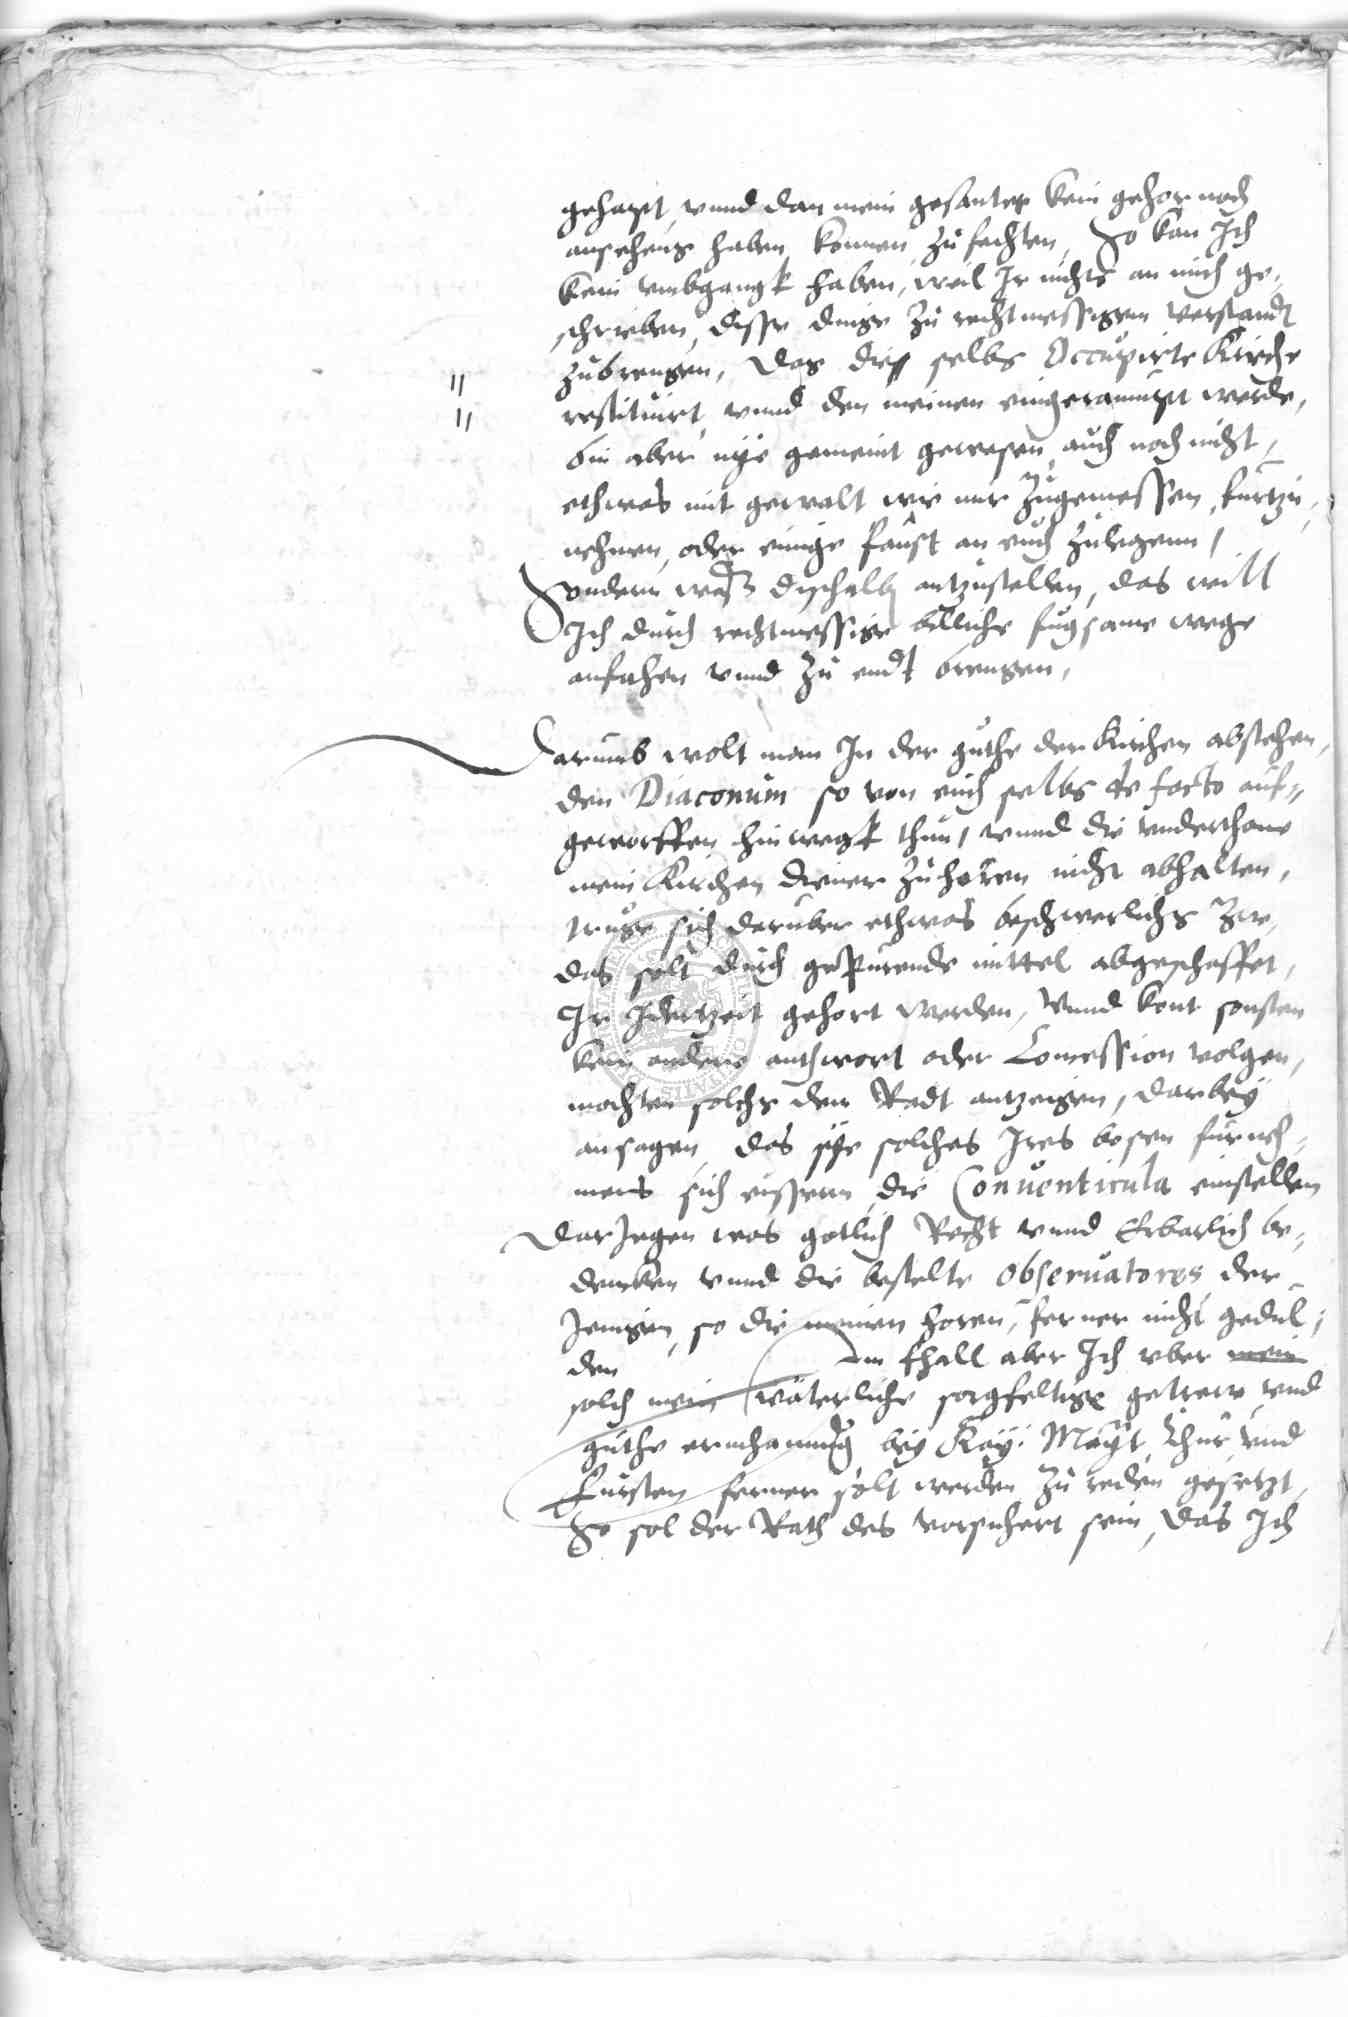 gehapt, vnnd dan mein gesanter kein gehor noch
ansehens haben konnen zu fechten, So kan Ich
kein vmbgangk haben, weil Ir nichts an mich ge,
schrieben, disse dinge zu rechtmessigem verstandt
zubrengen, Das die selbs Occupirte Kirche
restituirt, vnnd den meinen eingeraumpt werde,
bin aber nye gemeint gewesen, auch noch nicht,
ethwas mit gewalt, wie mir zugemessen, furtzu,
nehmen, oder einige faust an euch zulegenn,
Sondern waß dishalb antzustellen, das will
Ich durch rechtmessige billiche fugsame wege
anfahen vnnd zu endt brengen,
Darumb wolt man In der guthe der Kirchen abstehen,
den Diaconum so von euch selbs de facto auf=
geworffen hinwegk thun, vnnd die vnderthane
mein Kirchen diener zuhoren nicht abhalten,
truge sich daruber ethwas beschwerlichs zu,
das solt durch gepurende mittel abgeschaffet,
Ir Idertzeit gehort werden, Vnnd kont sonsten
kein andere anthwort oder Concession volgen,
mochten solchs dem Radt antzeigen, darbey
ansagen, das sye solches Ires bosen furneh=
mens sich eussern, die Conuenticula einstellen
Dar Jegen was gotlich Recht vnnd Erbarlich be=
dencken vnnd die bestelte obseruatores der
Jenigen, so die meinen horen, ferner nicht gedul,
den Im fhall aber Ich vber mein
solch mein väterliche sorgfeltige getrew vnd
guthe ermhanung bey Kay: Mayt, Chur vnd
Fursten ferner solt werden zu reden gesetzt,
So sol der Rath des vorsichert sein, das Ich